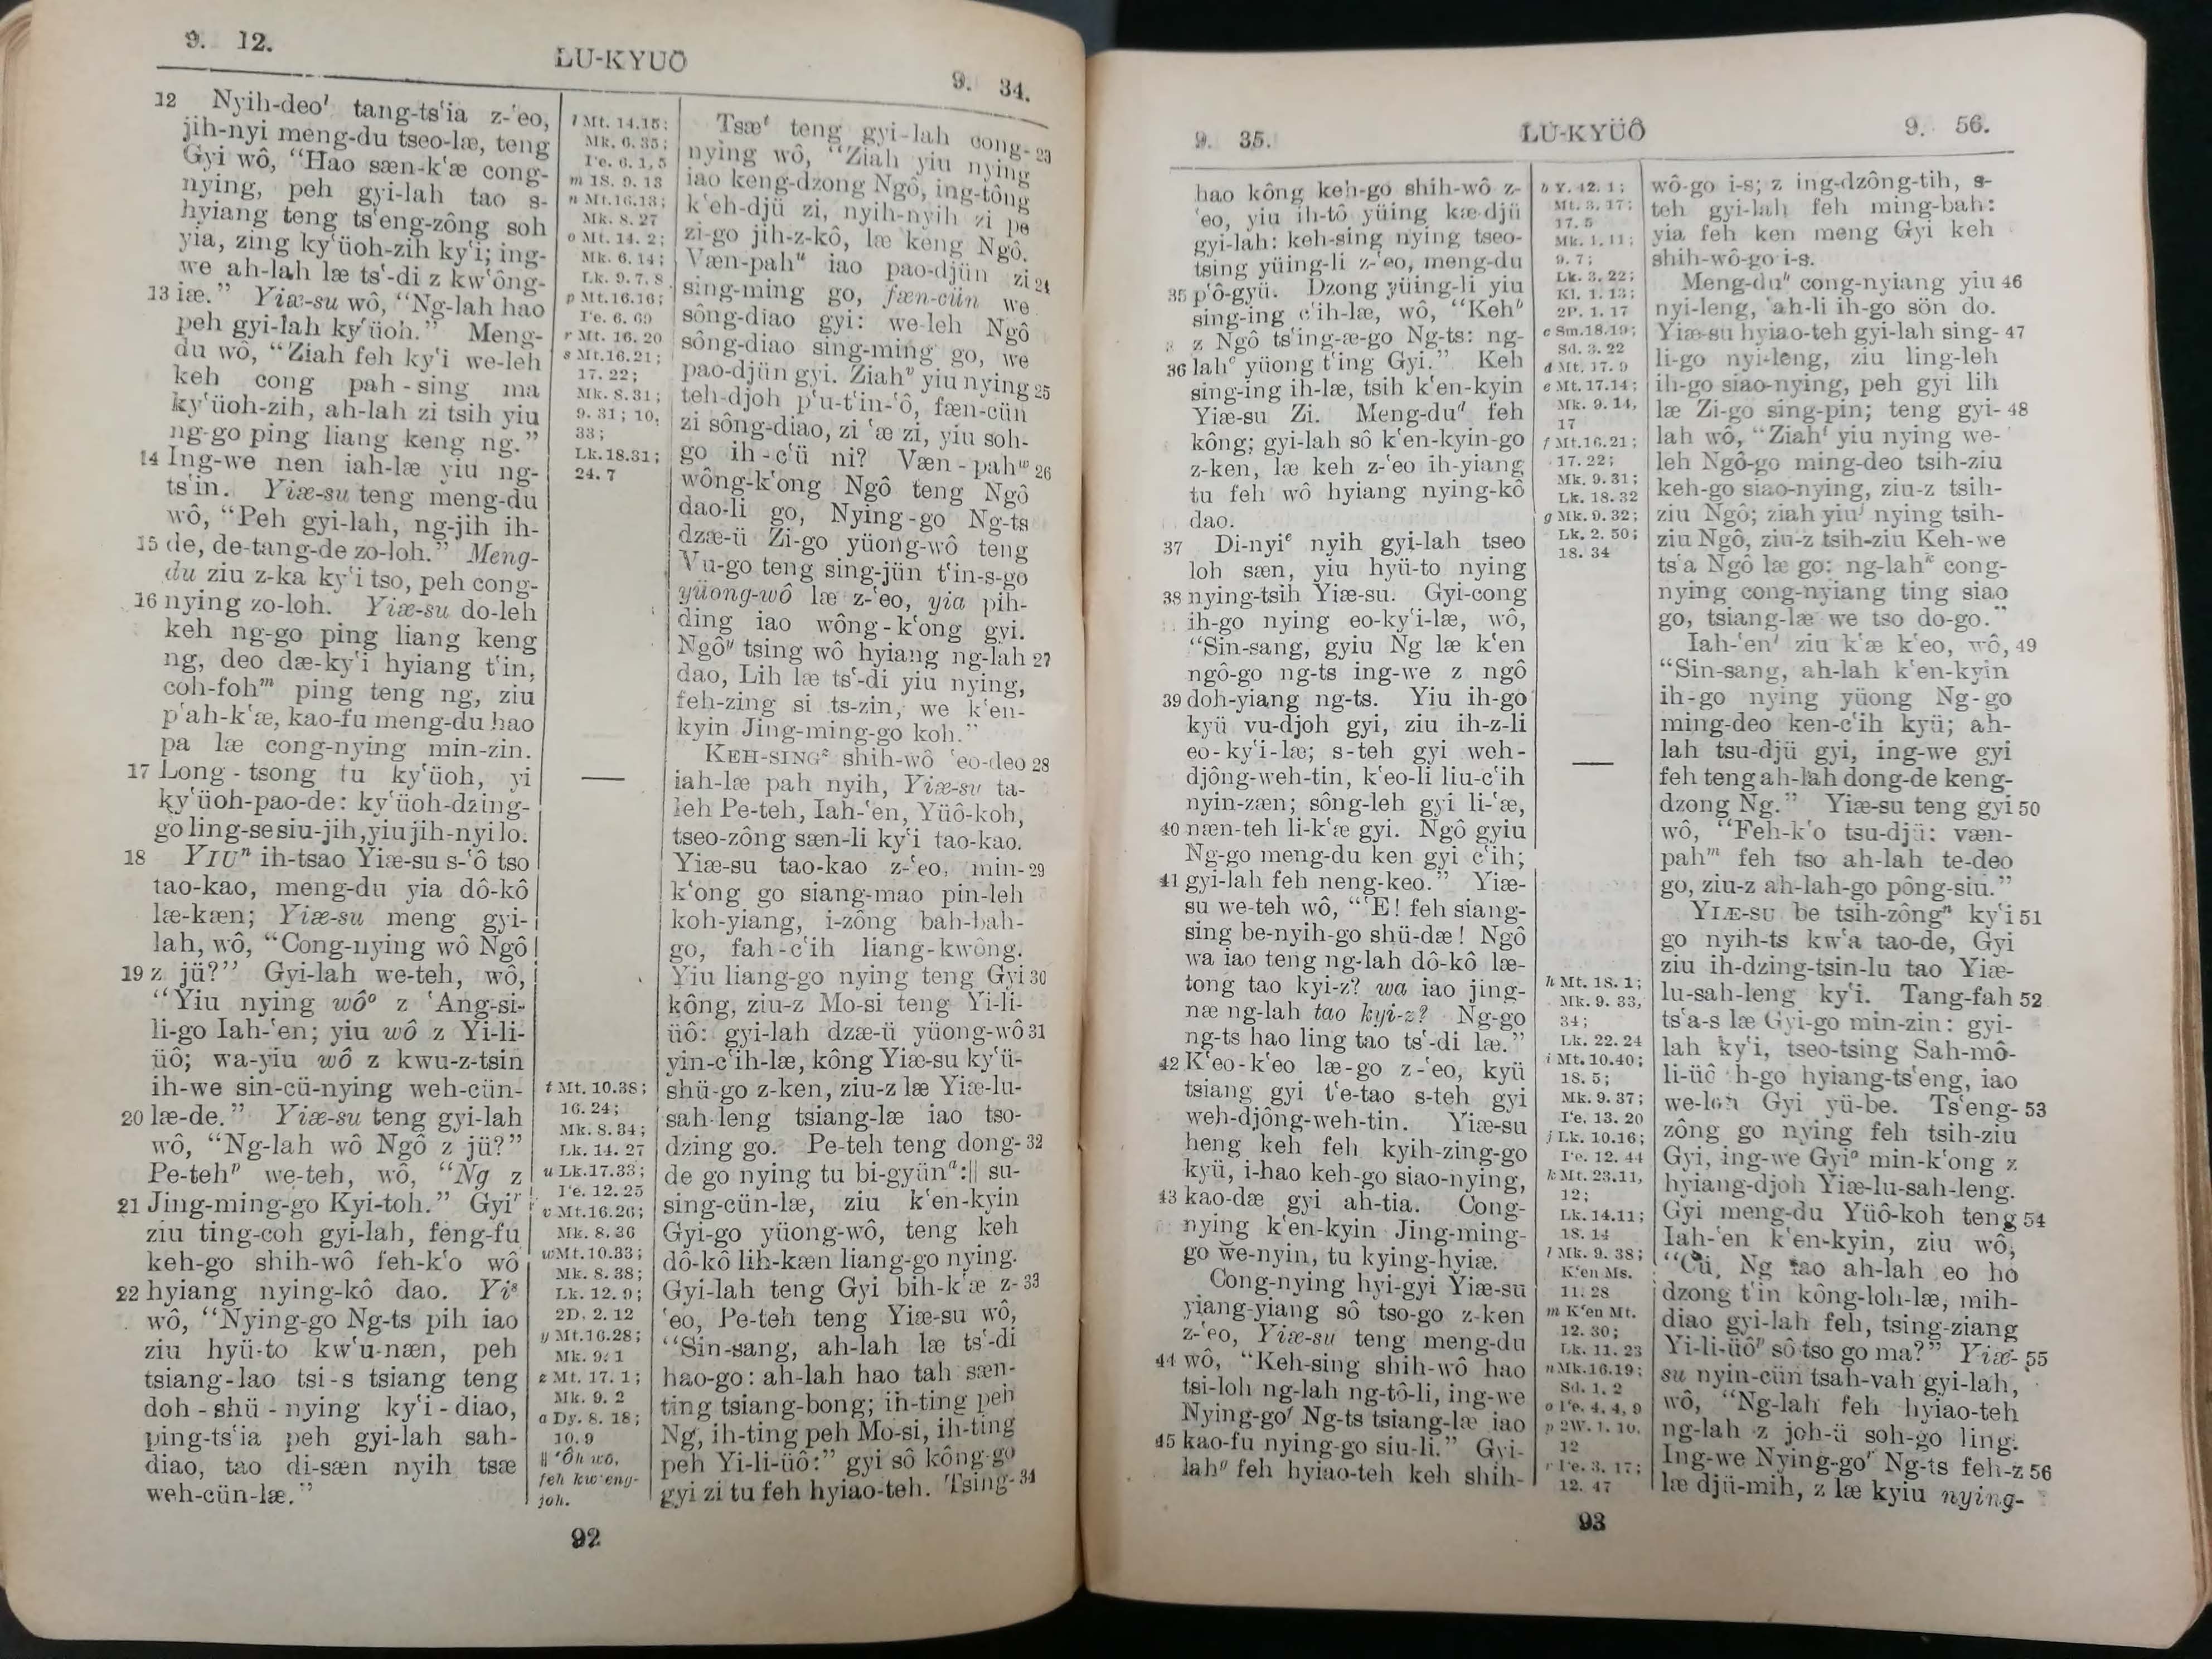 9. 12.
LU-KYUÔ
9. 34.
12 Nyih-deoˡ tang-tsʻia z-ʻeo,
jih-nyi meng-du tseo-læ, teng
Gyi wô, “Hao sæn-kʻæ cong-
nying, peh gyi-lah tao s-
hyiang teng tsʻeng-zông soh
yia, zing kyʻüoh-zih kyʻi; ing-
we ah-lah læ tsʻ-di z kwʻông-
13 iæ.” Yiæ-su wô, “Ng-lah hao
peh gyi-lah kyʻüoh.” Meng-
du wô, “Ziah feh kyʻi we-leh
keh cong pah-sing ma
kyʻüoh-zih, ah-lah zi tsih yiu
ng-go ping liang keng ng.”
14 Ing-we nen iah-læ yiu ng-
tsʻin. Yiæ-su teng meng-du
wô, “Peh gyi-lah, ng-jih ih-
15 de, de-tang-de zo-loh.” Meng-
du ziu z-ka kyʻi tso, peh cong-
16 nying zo-loh. Yiæ-su do-leh
keh ng-go ping liang keng
ng, deo dæ-kyʻi hyiang tʻin,
coh-fohᵐ ping teng ng, ziu
pʻah-kʻæ, kao-fu meng-du hao
pa læ cong-nying min-zin.
17 Long-tsong tu kyʻüoh, yi
kyʻüoh-pao-de: kyʻüoh-dzing-
go ling-se siu-jih, yiu jih-nyi lo.
18 YIUⁿ ih-tsao Yiæ-su s-ʻô tso
tao-kao, meng-du yia dô-kô
læ-kæn; Yiæ-su meng gyi-
lah, wô, “Cong-nying wô Ngô
19 z jü?” Gyi-lah we-teh, wô,
“Yiu nying wôᵒ z ʻAng-si-
li-go Iah-ʻen; yiu wô z Yi-li-
üô; wa-yiu wô z kwu-z-tsin
ih-we sin-cü-nying weh-cün-
20 læ-de.” Yiæ-su teng gyi-lah
wô, “Ng-lah wô Ngô z jü?”
Pe-tehᵖ we-teh, wô, “Ng z
21 Jing-ming-go Kyi-toh.” Gyiʳ
ziu ting-coh gyi-lah, feng-fu
keh-go shih-wô feh-kʻo wô
22 hyiang nying-kô dao. Yiˢ
wô, “Nying-go Ng-ts pih iao
ziu hyü-to kwʻu-næn, peh
tsiang-lao tsi-s tsiang teng
doh-shü-nying kyʻi-diao,
ping-tsʻia peh gyi-lah sah-
diao, tao di-sæn nyih tsæ
weh-cün-læ.”
l Mt. 14.15;
Mk. 6. 35;
Pe. 6. 1, 5
m 1S. 9. 13
n Mt.16.13;
Mk. 8. 27
o Mt. 14. 2;
Mk. 6. 14;
Lk. 9. 7, 8
p Mt.16.16;
Pe. 6. 69
r Mt. 16. 20
s Mt.16.21;
17. 22;
Mk. 8.31;
9. 31; 10.
33;
Lk.18.31;
24. 7
t Mt. 10.38;
16. 24;
Mk. 8. 34;
Lk. 14. 27
u Lk.17.33;
Pe. 12. 25
v Mt.16.26;
Mk. 8. 36
w Mt.10.33;
Mk. 8. 38;
Lk. 12. 9;
2D. 2. 12
y Mt.16.28;
Mk. 9. 1
z Mt. 17. 1;
Mk. 9. 2
a Dy. 8. 18;
10. 9
‖ ʻÔh wô,
feh kwʻeng-
joh.
Tsæᵗ teng gyi-lah cong- 23
nying wô, “Ziah yiu nying
iao keng-dzong Ngô, ing-tông
kʻeh-djü zi, nyih-nyih zi pe
zi-go jih-z-kô, læ keng Ngô.
Væn-pahᵘ iao pao-djün zi 24
sing-ming go, fæn-cün we
sông-diao gyi: we-leh Ngô
sông-diao sing-ming go, we
pao-djün gyi. Ziahᵛ yiu nying 25
teh-djoh pʻu-tʻin-ʻô, fæn-cün
zi sông-diao, zi ʻæ zi, yiu soh-
go ih-cʻü ni? Væn-pahʷ 26
wông-kʻong Ngô teng Ngô
dao-li go, Nying-go Ng-ts
dzæ-ü Zi-go yüong-wô teng
Vu-go teng sing-jün tʻin-s-go
yüong-wô læ z-ʻeo, yia pih-
ding iao wông-kʻong gyi.
Ngôʸ tsing wô hyiang ng-lah 27
dao, Lih læ tsʻ-di yiu nying,
feh-zing si ts-zin, we kʻen-
kyin Jing-ming-go koh.”
KEH-SINGᶻ shih-wô ʻeo-deo 28
iah-læ pah nyih, Yiæ-su ta-
leh Pe-teh, Iah-ʻen, Yüô-koh,
tseo-zông sæn-li kyʻi tao-kao.
Yiæ-su tao-kao z-ʻeo, min- 29
kʻong go siang-mao pin-leh
koh-yiang, i-zông bah-bah-
go, fah-cʻih liang-kwông.
Yiu liang-go nying teng Gyi 30
kông, ziu-z Mo-si teng Yi-li-
üô: gyi-lah dzæ-ü yüong-wô 31
yin-cʻih-læ, kông Yiæ-su kyʻü-
shü-go z-ken, ziu-z læ Yiæ-lu-
sah-leng tsiang-læ iao tso-
dzing go. Pe-teh teng dong- 32
de go nying tu bi-gyünᵃ:‖ su-
sing-cün-læ, ziu kʻen-kyin
Gyi-go yüong-wô, teng keh
dô-kô lih-kæn liang-go nying.
Gyi-lah teng Gyi bih-kʻæ z- 33
ʻeo, Pe-teh teng Yiæ-su wô,
“Sin-sang, ah-lah læ tsʻ-di
hao-go: ah-lah hao tah sæn-
ting tsiang-bong; ih-ting peh
Ng, ih-ting peh Mo-si, ih-ting
peh Yi-li-üô:” gyi sô kông-go
gyi zi tu feh hyiao-teh. Tsing- 34
92
9. 35.
LU-KYÜÔ
9. 56.
hao kông keh-go shih-wô z-
ʻeo, yiu ih-tô yüing kæ-djü
gyi-lah: keh-sing nying tseo-
tsing yüing-li z-ʻeo, meng-du
35 pʻô-gyü. Dzong yüing-li yiu
sing-ing cʻih-læ, wô, “Kehᵇ
z Ngô tsʻing-æ-go Ng-ts: ng-
36 lahᶜ yüong tʻing Gyi.” Keh
sing-ing ih-læ, tsih kʻen-kyin
Yiæ-su Zi. Meng-duᵈ feh
kông; gyi-lah sô kʻen-kyin-go
z-ken, læ keh z-ʻeo ih-yiang
tu feh wô hyiang nying-kô
dao.
37 Di-nyiᵉ nyih gyi-lah tseo
loh sæn, yiu hyü-to nying
38 nying-tsih Yiæ-su. Gyi-cong
ih-go nying eo-kyʻi-læ, wô,
“Sin-sang, gyiu Ng læ kʻen
ngô-go ng-ts ing-we z ngô
39 doh-yiang ng-ts. Yiu ih-go
kyü vu-djoh gyi, ziu ih-z-li
eo-kyʻi-læ; s-teh gyi weh-
djông-weh-tin, kʻeo-li liu-cʻih
nyin-zæn; sông-leh gyi li-ʻæ,
40 næn-teh li-kʻæ gyi. Ngô gyiu
Ng-go meng-du ken gyi cʻih;
41 gyi-lah feh neng-keo.” Yiæ-
su we-teh wô, “ʻE! feh siang-
sing be-nyih-go shü-dæ! Ngô
wa iao teng ng-lah dô-kô læ-
tong tao kyi-z? wa iao jing-
næ ng-lah tao kyi-z? Ng-go
ng-ts hao ling tao tsʻ-di læ.”
42 Kʻeo-kʻeo læ-go z-ʻeo, kyü
tsiang gyi tʻe-tao s-teh gyi
weh-djông-weh-tin. Yiæ-su
heng keh feh kyih-zing-go
kyü, i-hao keh-go siao-nying,
43 kao-dæ gyi ah-tia. Cong-
nying kʻen-kyin Jing-ming-
go we-nyin, tu kying-hyiæ.
Cong-nying hyi-gyi Yiæ-su
yiang-yiang sô tso-go z-ken
z-ʻeo, Yiæ-su teng meng-du
44 wô, “Keh-sing shih-wô hao
tsi-loh ng-lah ng-tô-li, ing-we
Nying-goᶠ Ng-ts tsiang-læ iao
45 kao-fu nying-go siu-li.” Gyi-
lahᵍ feh hyiao-teh keh shih-
b Y. 42. 1;
Mt. 3. 17;
17. 5
Mk. 1. 11;
9. 7;
Lk. 3. 22;
Kl. 1. 13;
2P. 1. 17
c Sm.18.19;
Sd. 3. 22
d Mt. 17. 9
e Mt. 17.14;
Mk. 9. 14,
17
f Mt.16.21;
17. 22;
Mk. 9. 31;
Lk. 18. 32
g Mk. 9. 32;
Lk. 2. 50;
18. 34
h Mt. 18. 1;
Mk. 9. 33,
34;
Lk. 22. 24
i Mt. 10.40;
18. 5;
Mk. 9. 37;
Pe. 13. 20
j Lk. 10.16;
Pe. 12. 44
k Mt. 23.11,
12;
Lk. 14.11;
18. 14
l Mk. 9. 38;
Kʻen Ms.
11. 28
m Kʻen Mt.
12. 30;
Lk. 11. 23
n Mk.16.19;
Sd. 1. 2
o Pe. 4. 4, 9
p 2W. 1. 10,
12
r Pe. 3. 17;
12. 47
wô-go i-s; z ing-dzông-tih, s-
teh gyi-lah feh ming-bah:
yia feh ken meng Gyi keh
shih-wô-go i-s.
Meng-duʰ cong-nyiang yiu 46
nyi-leng, ʻah-li ih-go sön do.
Yiæ-su hyiao-teh gyi-lah sing- 47
li-go nyi-leng, ziu ling-leh
ih-go siao-nying, peh gyi lih
læ Zi-go sing-pin; teng gyi- 48
lah wô, “Ziahⁱ yiu nying we-
leh Ngô-go ming-deo tsih-ziu
keh-go siao-nying, ziu-z tsih-
ziu Ngô; ziah yiuʲ nying tsih-
ziu Ngô, ziu-z tsih-ziu Keh-we
tsʻa Ngô læ go: ng-lahᵏ cong-
nying cong-nyiang ting siao
go, tsiang-læ we tso do-go.”
Iah-ʻenˡ ziu kʻæ kʻeo, wô, 49
“Sin-sang, ah-lah kʻen-kyin
ih-go nying yüong Ng-go
ming-deo ken-cʻih kyü; ah-
lah tsu-djü gyi, ing-we gyi
feh teng ah-lah dong-de keng-
dzong Ng.” Yiæ-su teng gyi 50
wô, “Feh-kʻo tsu-djü: væn-
pahᵐ feh tso ah-lah te-deo
go, ziu-z ah-lah-go pông-siu.”
YIÆ-SU be tsih-zôngⁿ kyʻi 51
go nyih-ts kwʻa tao-de, Gyi
ziu ih-dzing-tsin-lu tao Yiæ-
lu-sah-leng kyʻi. Tang-fah 52
tsʻa-s læ Gyi-go min-zin: gyi-
lah kyʻi, tseo-tsing Sah-mô-
li-üô h-go hyiang-tsʻeng, iao
we-leh Gyi yü-be. Tsʻeng- 53
zông go nying feh tsih-ziu
Gyi, ing-we Gyiᵒ min-kʻong z
hyiang-djoh Yiæ-lu-sah-leng.
Gyi meng-du Yüô-koh teng 54
Iah-ʻen kʻen-kyin, ziu wô,
“Cü, Ng iao ah-lah eo ho
dzong tʻin kông-loh-læ, mih-
diao gyi-lah feh, tsing-ziang
Yi-li-üôᵖ sô tso go ma?” Yiæ- 55
su nyin-cün tsah-vah gyi-lah,
wô, “Ng-lah feh hyiao-teh
ng-lah z joh-ü soh-go ling.
Ing-we Nying-goʳ Ng-ts feh-z 56
læ djü-mih, z læ kyiu nying-
93